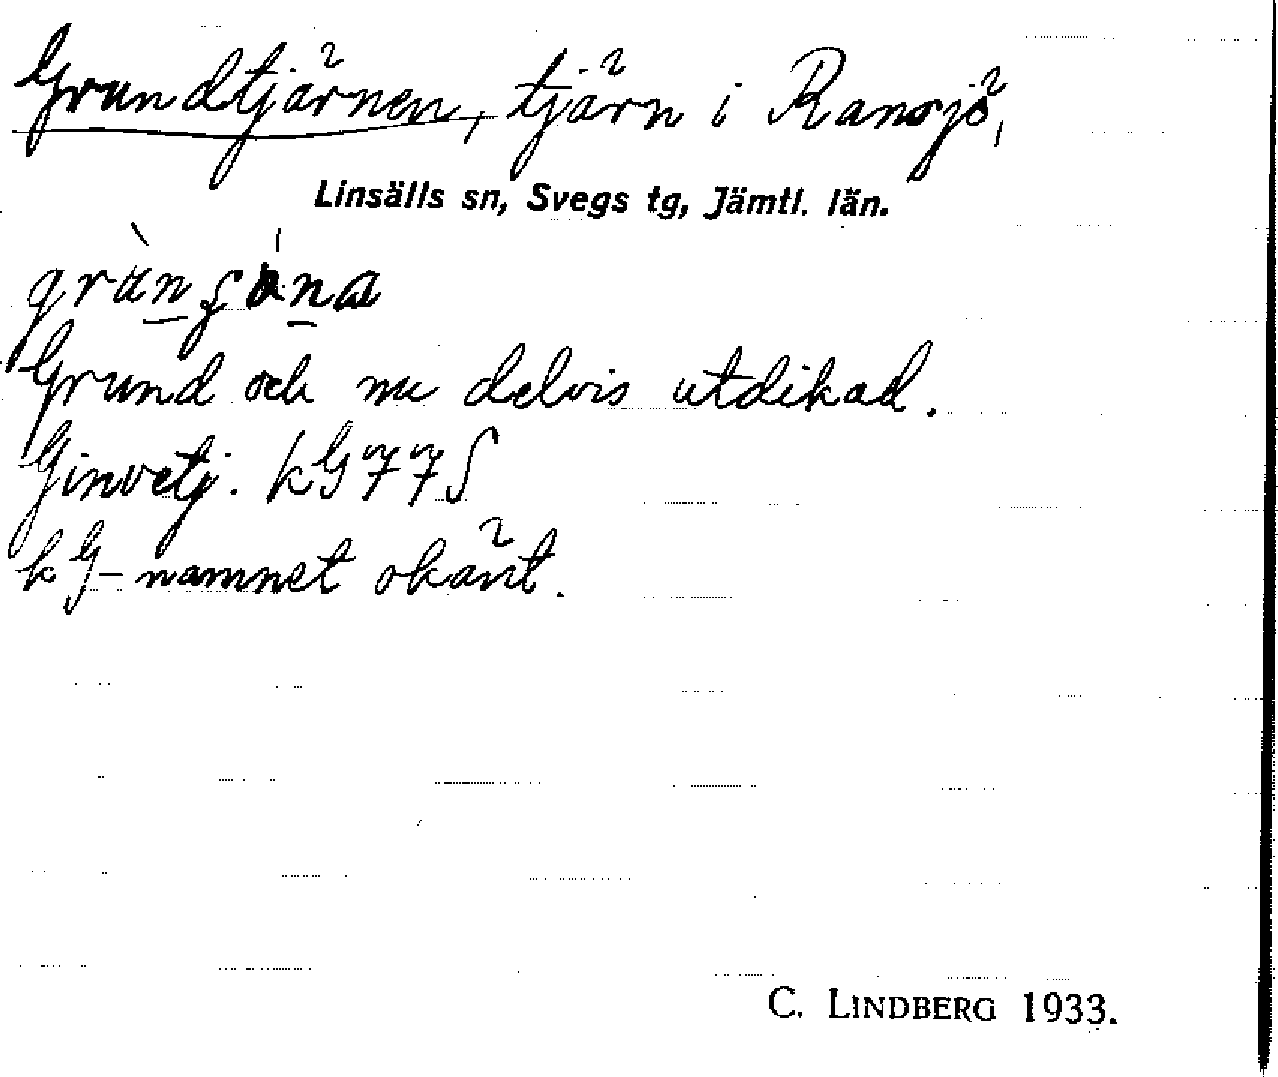 Grundtjärnen, tjärn i Ransjö,
Linsälls sn, Svegs tg, Jämtl. län.
Grund och nu delvis utdikad.
Ginvetj. kG 77 S
kG-namnet okänt.
C. LINDBERG 1933.